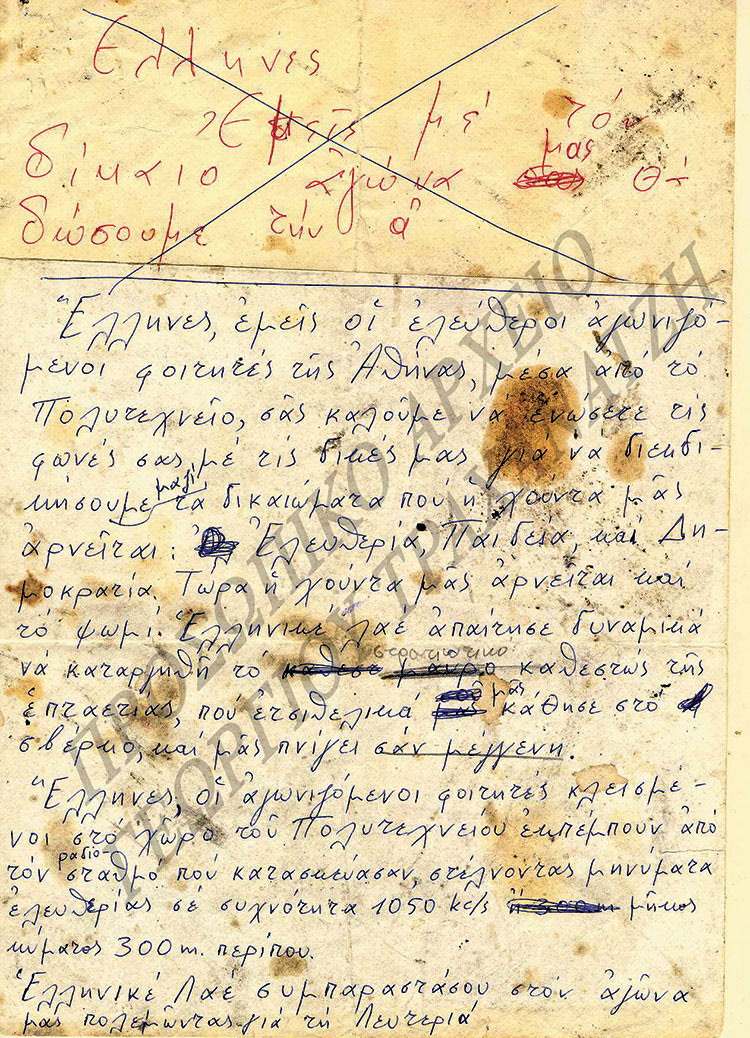 Ελληνες
Ἐμεῖς μέ τόν
μας
δίκαιο ἀγώνα θά
δώσουμε τήν ἀ
Ἕλληνες, ἐμεῖς οἱ ἐλεύθεροι ἀγωνιζό-
μενοι φοιτητές τῆς Ἀθήνας, μέσα ἀπό τό
Πολυτεχνεῖο, σᾶς καλοῦμε νά ἑνώσετε τίς
φωνές σας μέ τίς δικές μας γιά νά διεκδι-
μαζί
κήσουμε τά δικαιώματα πού ἡ χούντα μᾶς
ἀρνεῖται: Ἐλευθερία, Παιδεία, καί Δη-
μοκρατία. Τώρα ἡ χούντα μᾶς ἀρνεῖται καί
τό ψωμί. Ἑλληνικέ λαέ ἀπαίτησε δυναμικά
στρατιωτικο
νά καταργηθῆ τό καθεστ μαυρο καθεστώς τῆς
μᾶς
ἑπταετίας, πού ἐτσιθελικά κάθησε στό
σβέρκο, καί μᾶς πνίγει σάν μέγγενη.
Ἕλληνες, οἱ ἀγωνιζόμενοι φοιτητές κλεισμέ-
νοι στό χῶρο τοῦ Πολυτεχνείου ἐκπέμπουν ἀπό
ραδιο-
τόν σταθμο πού κατασκεύασαν, στέλνοντας μηνύματα
ἐλευθερίας σέ συχνότητα 1050 kc/s ἤ 300 m μῆκος
κύματος 300 m. περίπου.
Ἑλληνικέ Λαέ συμπαραστάσου στόν ἀγῶνα
μας πολεμῶντας γιά τή Λευτεριά
ΠΡΟΣΩΠΙΚΟ ΑΡΧΕΙΟ
ΓΕΩΡΓΙΟΥ